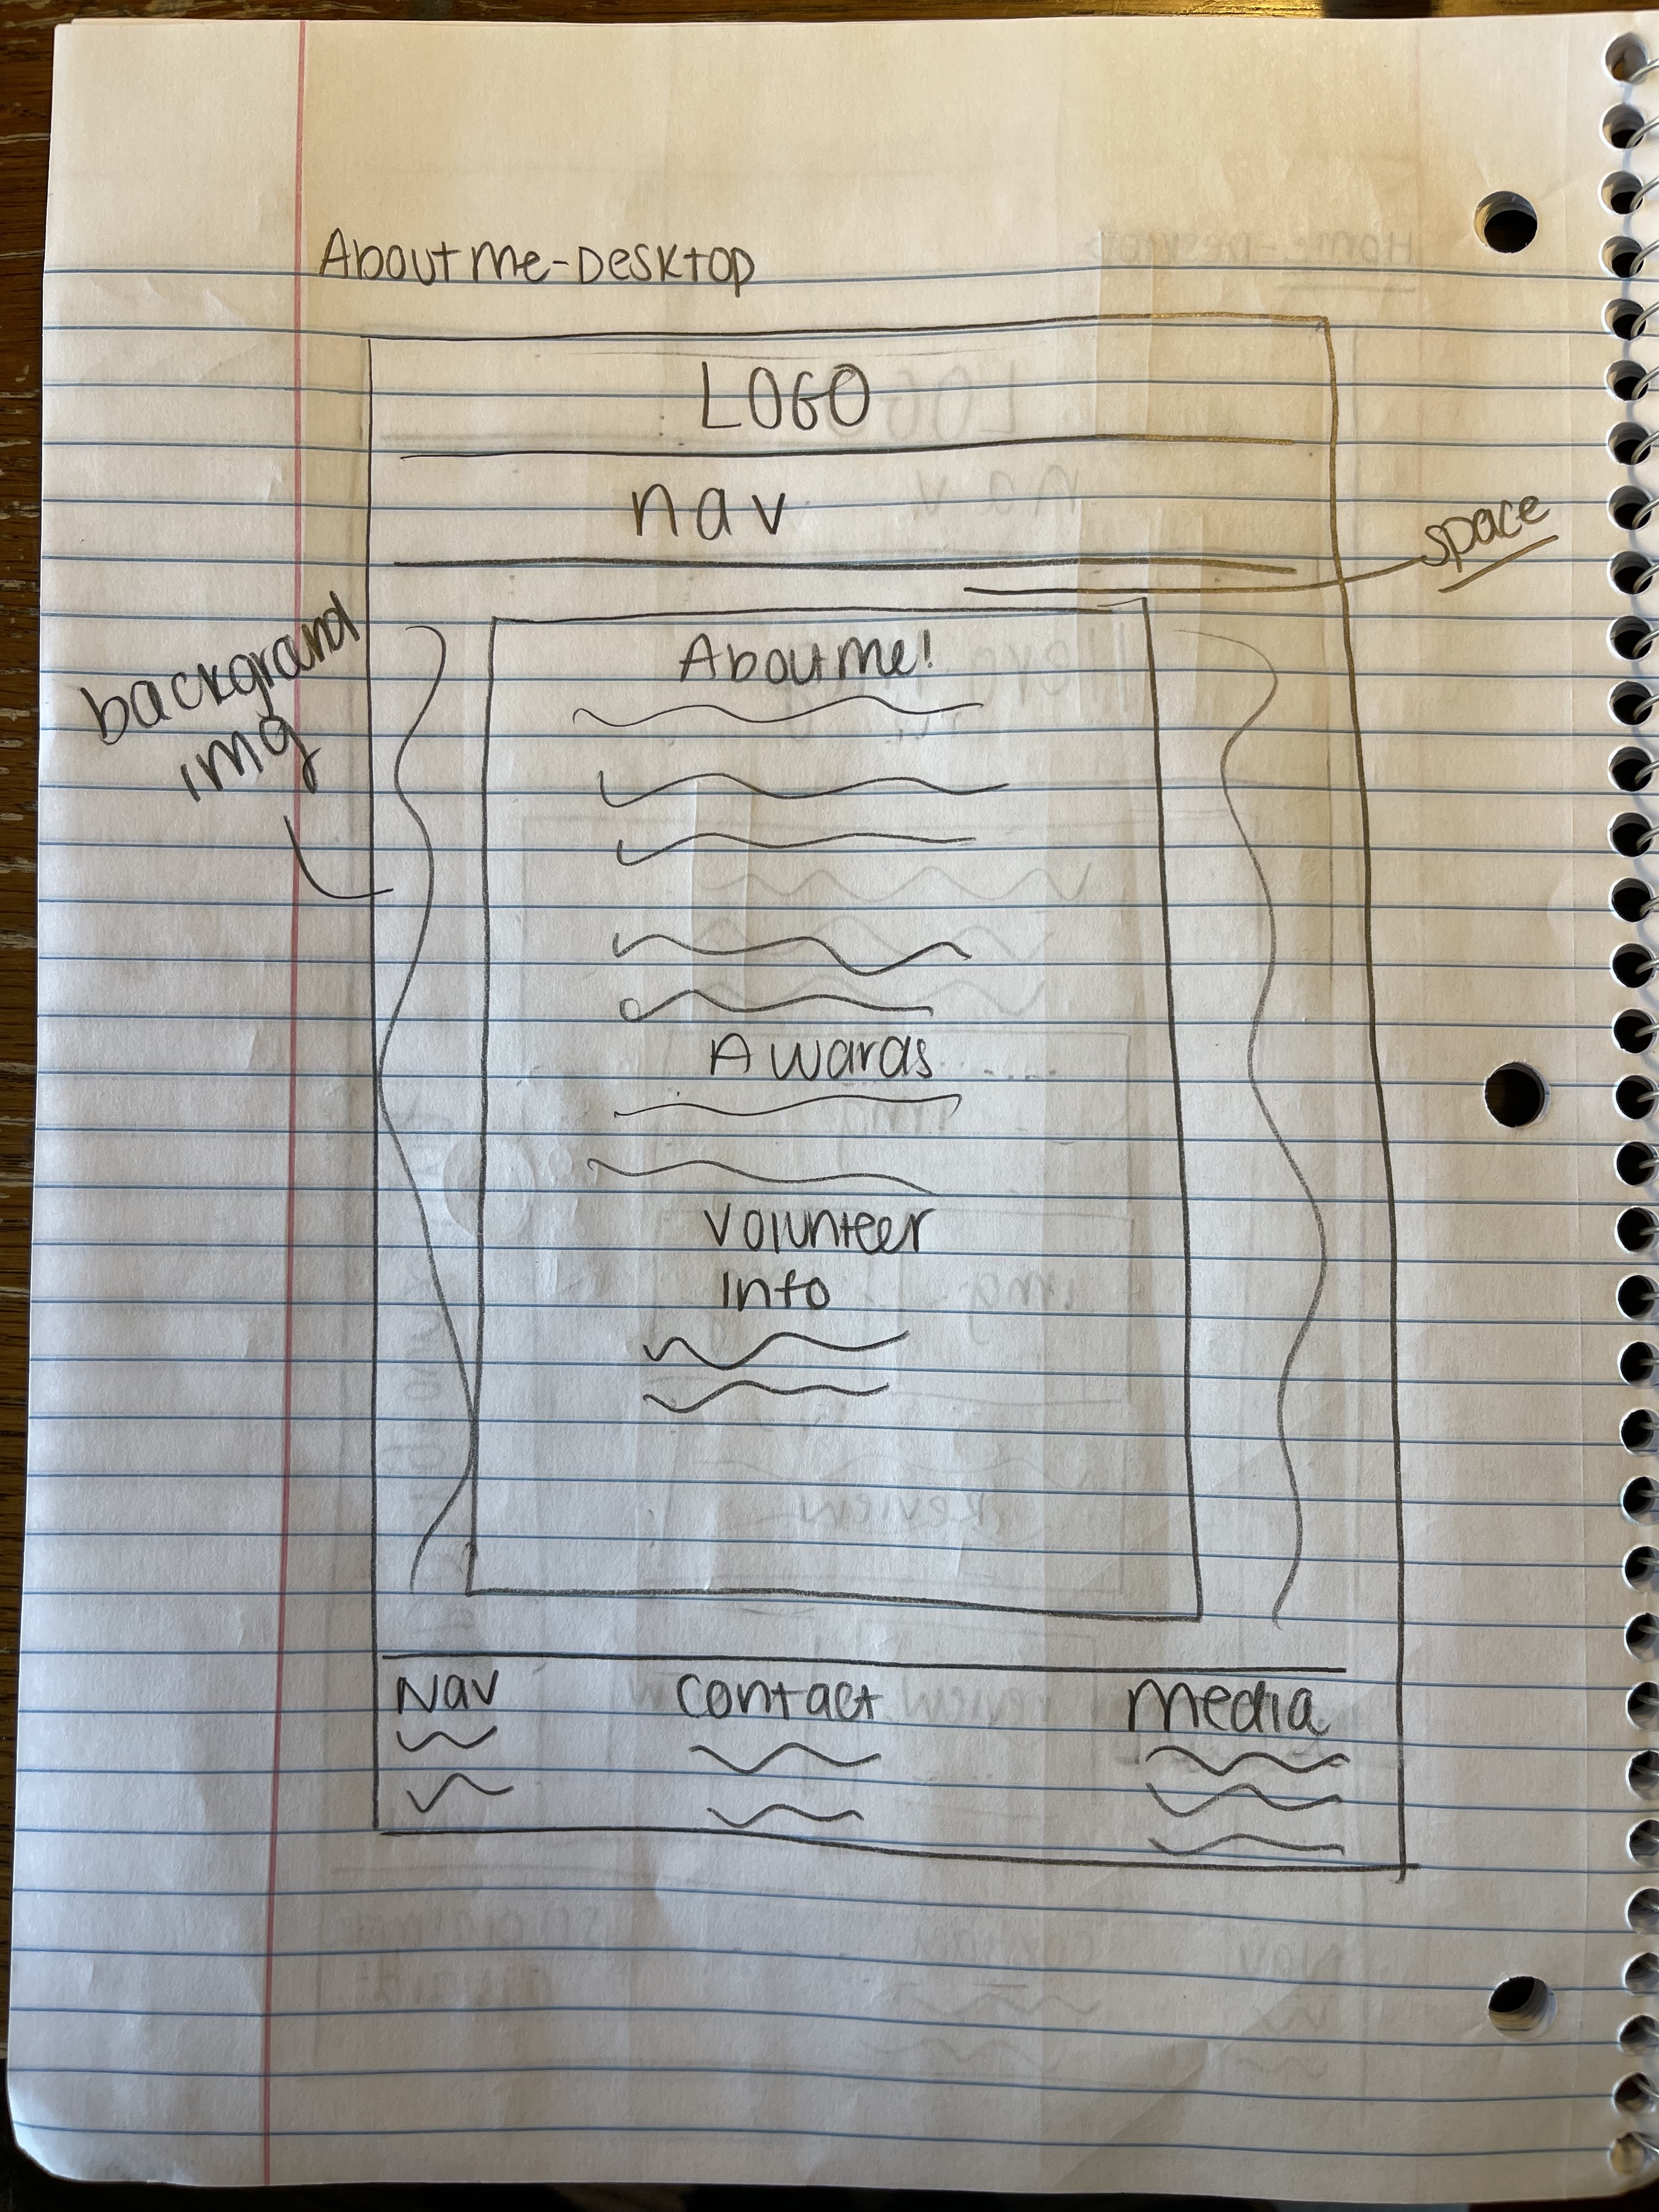 About me - Desktop
LOGO
nav
space
background
img
About me!
Awards
Volunteer
Info
Nav
contact
media